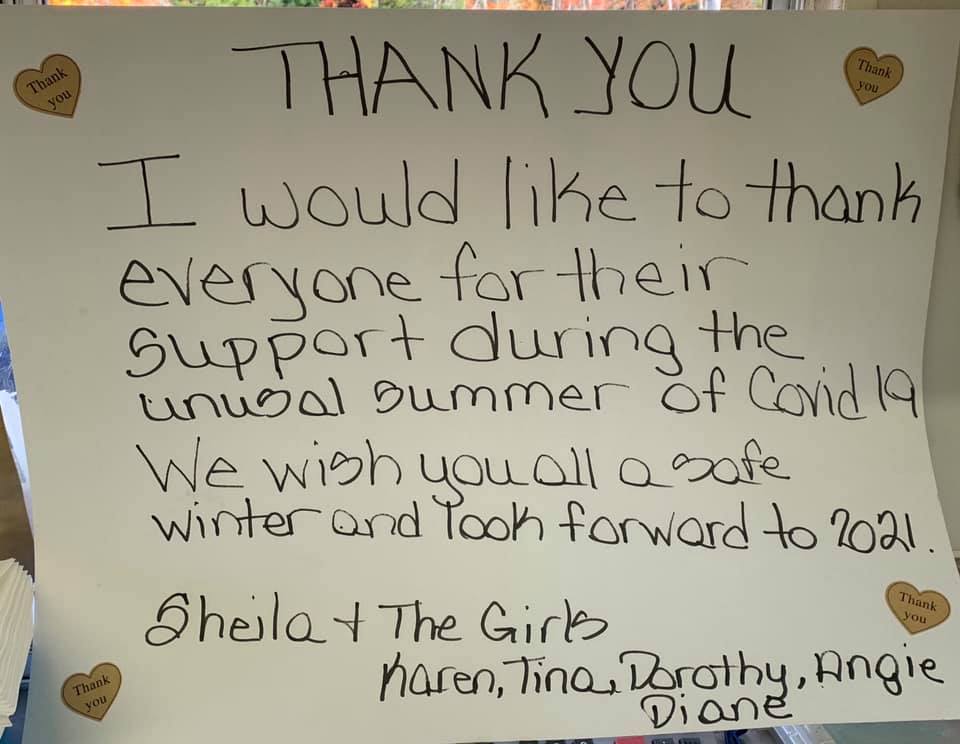 THANK YOU
Thank you
Thank you
I would like to thank
everyone for their
support during the
unusal summer of Covid 19
We wish you all a safe
winter and look forward to 2021.
Thank you
Sheila + The Girls
Karen, Tina, Dorothy, Angie
Diane
Thank you